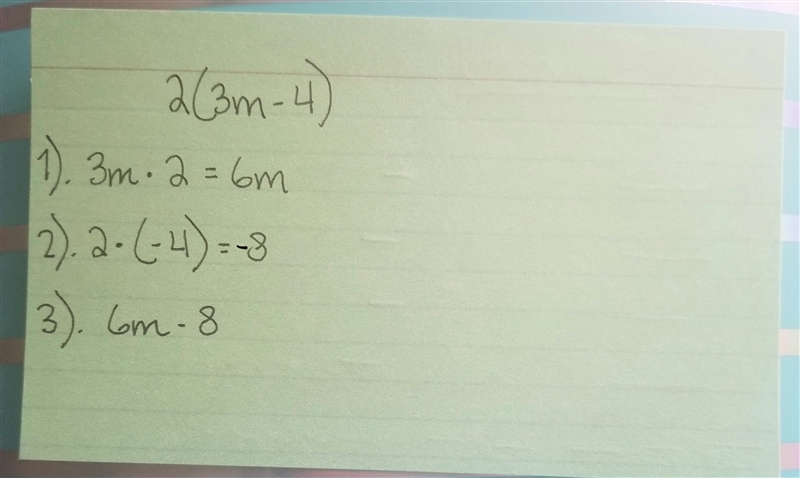 2(3m-4)
1). 3m · 2 = 6m
2). 2 · (-4) = -8
3). 6m - 8